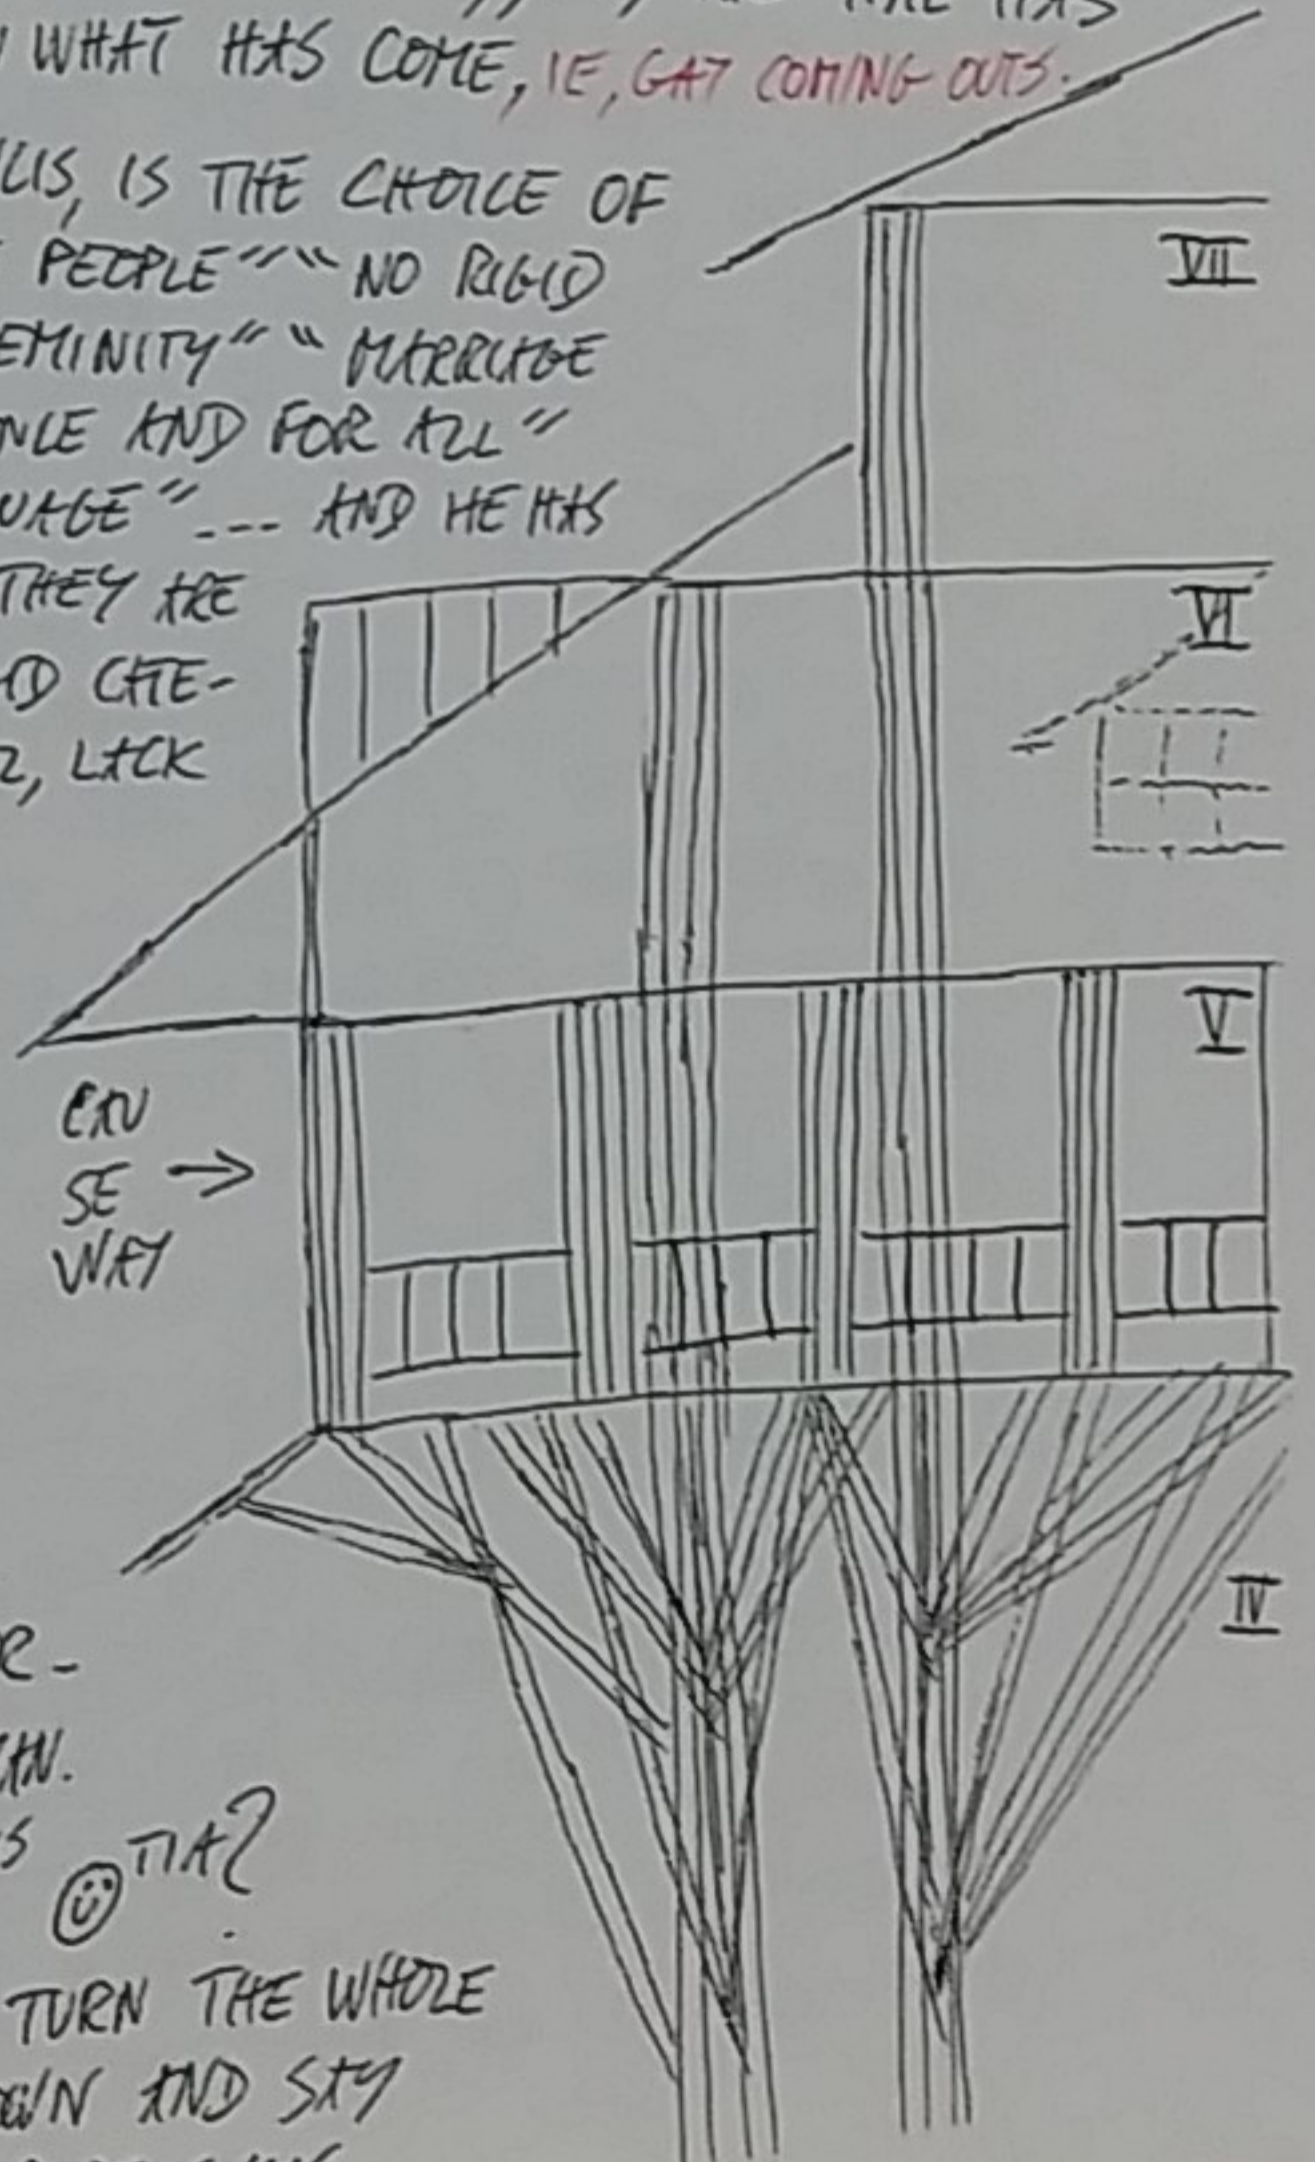 HAS
WHAT HAS COME, IE, GAY COMING OUTS.
LLIS, IS THE CHOICE OF
PEOPLE" "NO RIGID
EMINITY" "MARRIAGE
NCE AND FOR ALL"
UAGE" --- AND HE HAS
THEY ARE
D CAE-
, LACK
VII
VI
V
CAU
SE →
WAY
IV
R-
AN.
S ☺ TIA?
TURN THE WHOLE
OWN AND SAY